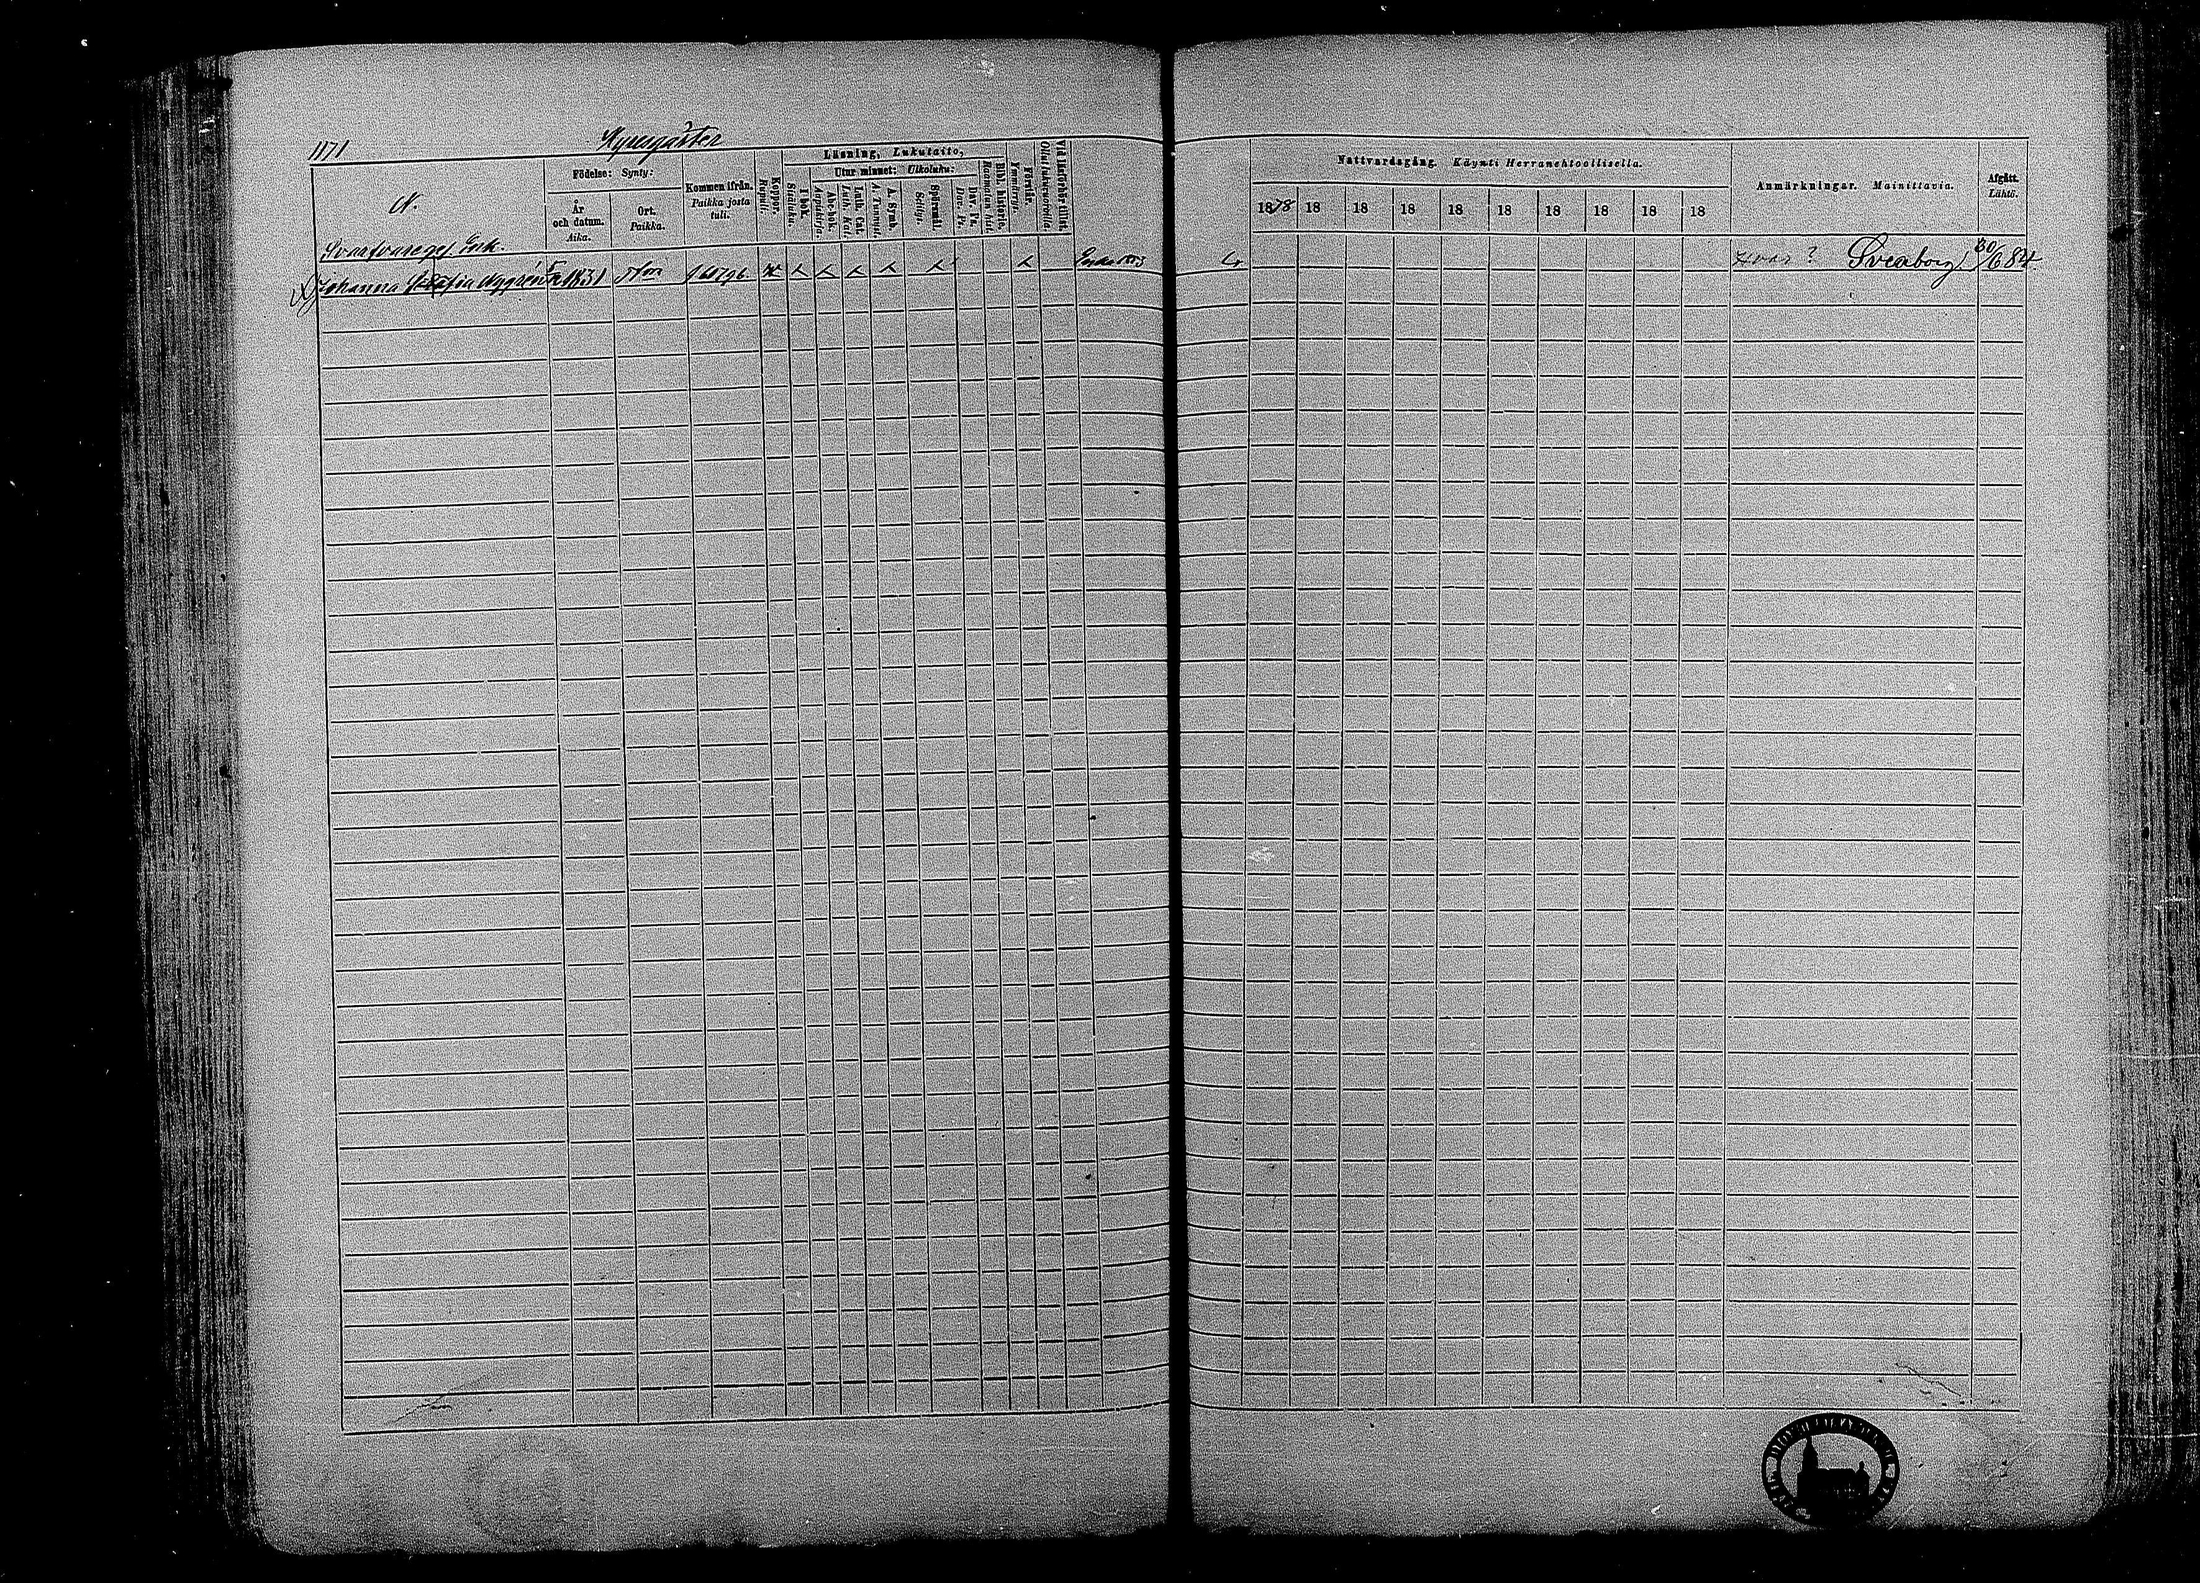 1171 Hyresgäster
N.
Födelse: Synty:
År och datum. Aika.
Ort. Paikka.
Kommen ifrån. Paikka josta tuli.
Koppor. Rupuli.
Läsning, Lukutaito,
I bok. Sisäluku.
Utur minnet: Ulkoluku:
Abc-bok. Aapiskirja.
Luth. Cat. Luth. Kat.
A. Symb. A. Tunnust.
Spörsmål. Selitys.
Dav. Ps. Dav. Ps.
Bibl. historie. Raamatun hist.
Förstår. Ymmärrys.
Vid läsförhör tillst. Ollut lukuvuorolla.
Nattvardsgång. Käynti Herranehtoollisella.
1878 18 18 18 18 18 18 18 18 18
Anmärkningar. Mainittavia.
Afgått. Lähtö.
Svarfvareges. Enk.
Johanna Sofia Aggrén 1831 Åbo
Hvar? Sveaborg. 30/6 84.